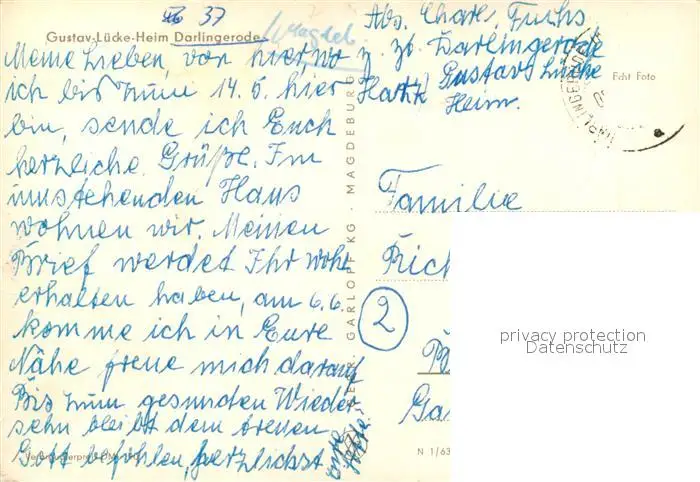 37
Gustav-Lücke-Heim Darlingerode
Magdeb
Meine Lieben, von hier, wo
ich bis zum 14. 5. hier
bin, sende ich Euch
herzliche Grüße. Im
umstehenden Haus
wohnen wir. Meinen
Brief werdet Ihr wohl
erhalten haben, am 6.6.
komme ich in Eure
Nähe freue mich darauf
Bis zum gesunden Wieder
sehn bleibt dem treuen
Gott befohlen, herzlichst
Eure
GARLOPP KG · MAGDEBURG
Abs. Charl. Fuchs
z. Zt. Darlingerode
Harz Gustav Lücke
Heim.
Echt Foto
Familie
Rich
2
Ga
N 1/63
privacy protection
Datenschutz